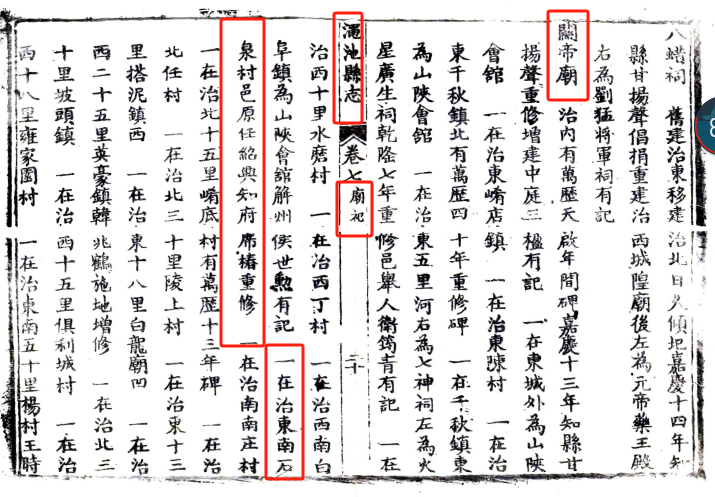 八蜡祠　舊建治東移建治北日久傾圮嘉慶十四年知
縣甘揚聲倡捐重建治西城隍廟後左為元帝藥王殿
右為劉猛將軍祠有記
關帝廟　治內有萬歷天啟年間碑嘉慶十三年知縣甘
揚聲重修增建中庭三楹有記　一在東城外為山陝
會館　一在治東崤店鎮　一在治東陳村　一在治
東千秋鎮北有萬歷四十年重修碑　一在千秋鎮東
為山陝會館　一在治東五里河右為七神祠左為火
星廣生祠乾隆七年重修邑舉人衛青有記　一在
澠池縣志　卷七　廟祀　三十
治西十里水磨村　一在治西丁村　一在治西南白
阜鎮為山陝會館解州侯世勲有記　一在治東南石
泉村邑原任紹興知府席椿重修　一在治南南庄村
一在治北十五里崤底村有萬歷十三年碑　一在治
北任村　一在治北三十里陵上村　一在治東十三
里搭泥鎮西　一在治東十八里白龍廟凹　一在治
西二十五里英豪鎮韓兆鶴施地增修　一在治北三
十里坡頭鎮　一在治西十五里俱利城村　一在治
西十八里雍家園村　一在治東南五十里楊村王時